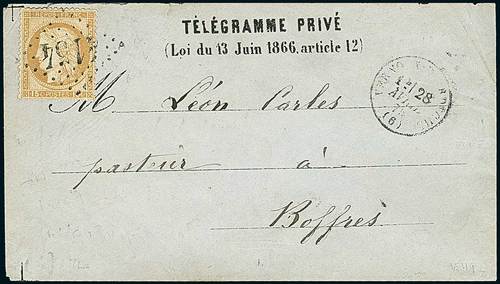 TÉLÉGRAMME PRIVÉ
(Loi du 13 Juin 1866, article 12)
15 C. POSTES 15 C.
28
(6)
M Léon Carles
pasteur à
Boffres